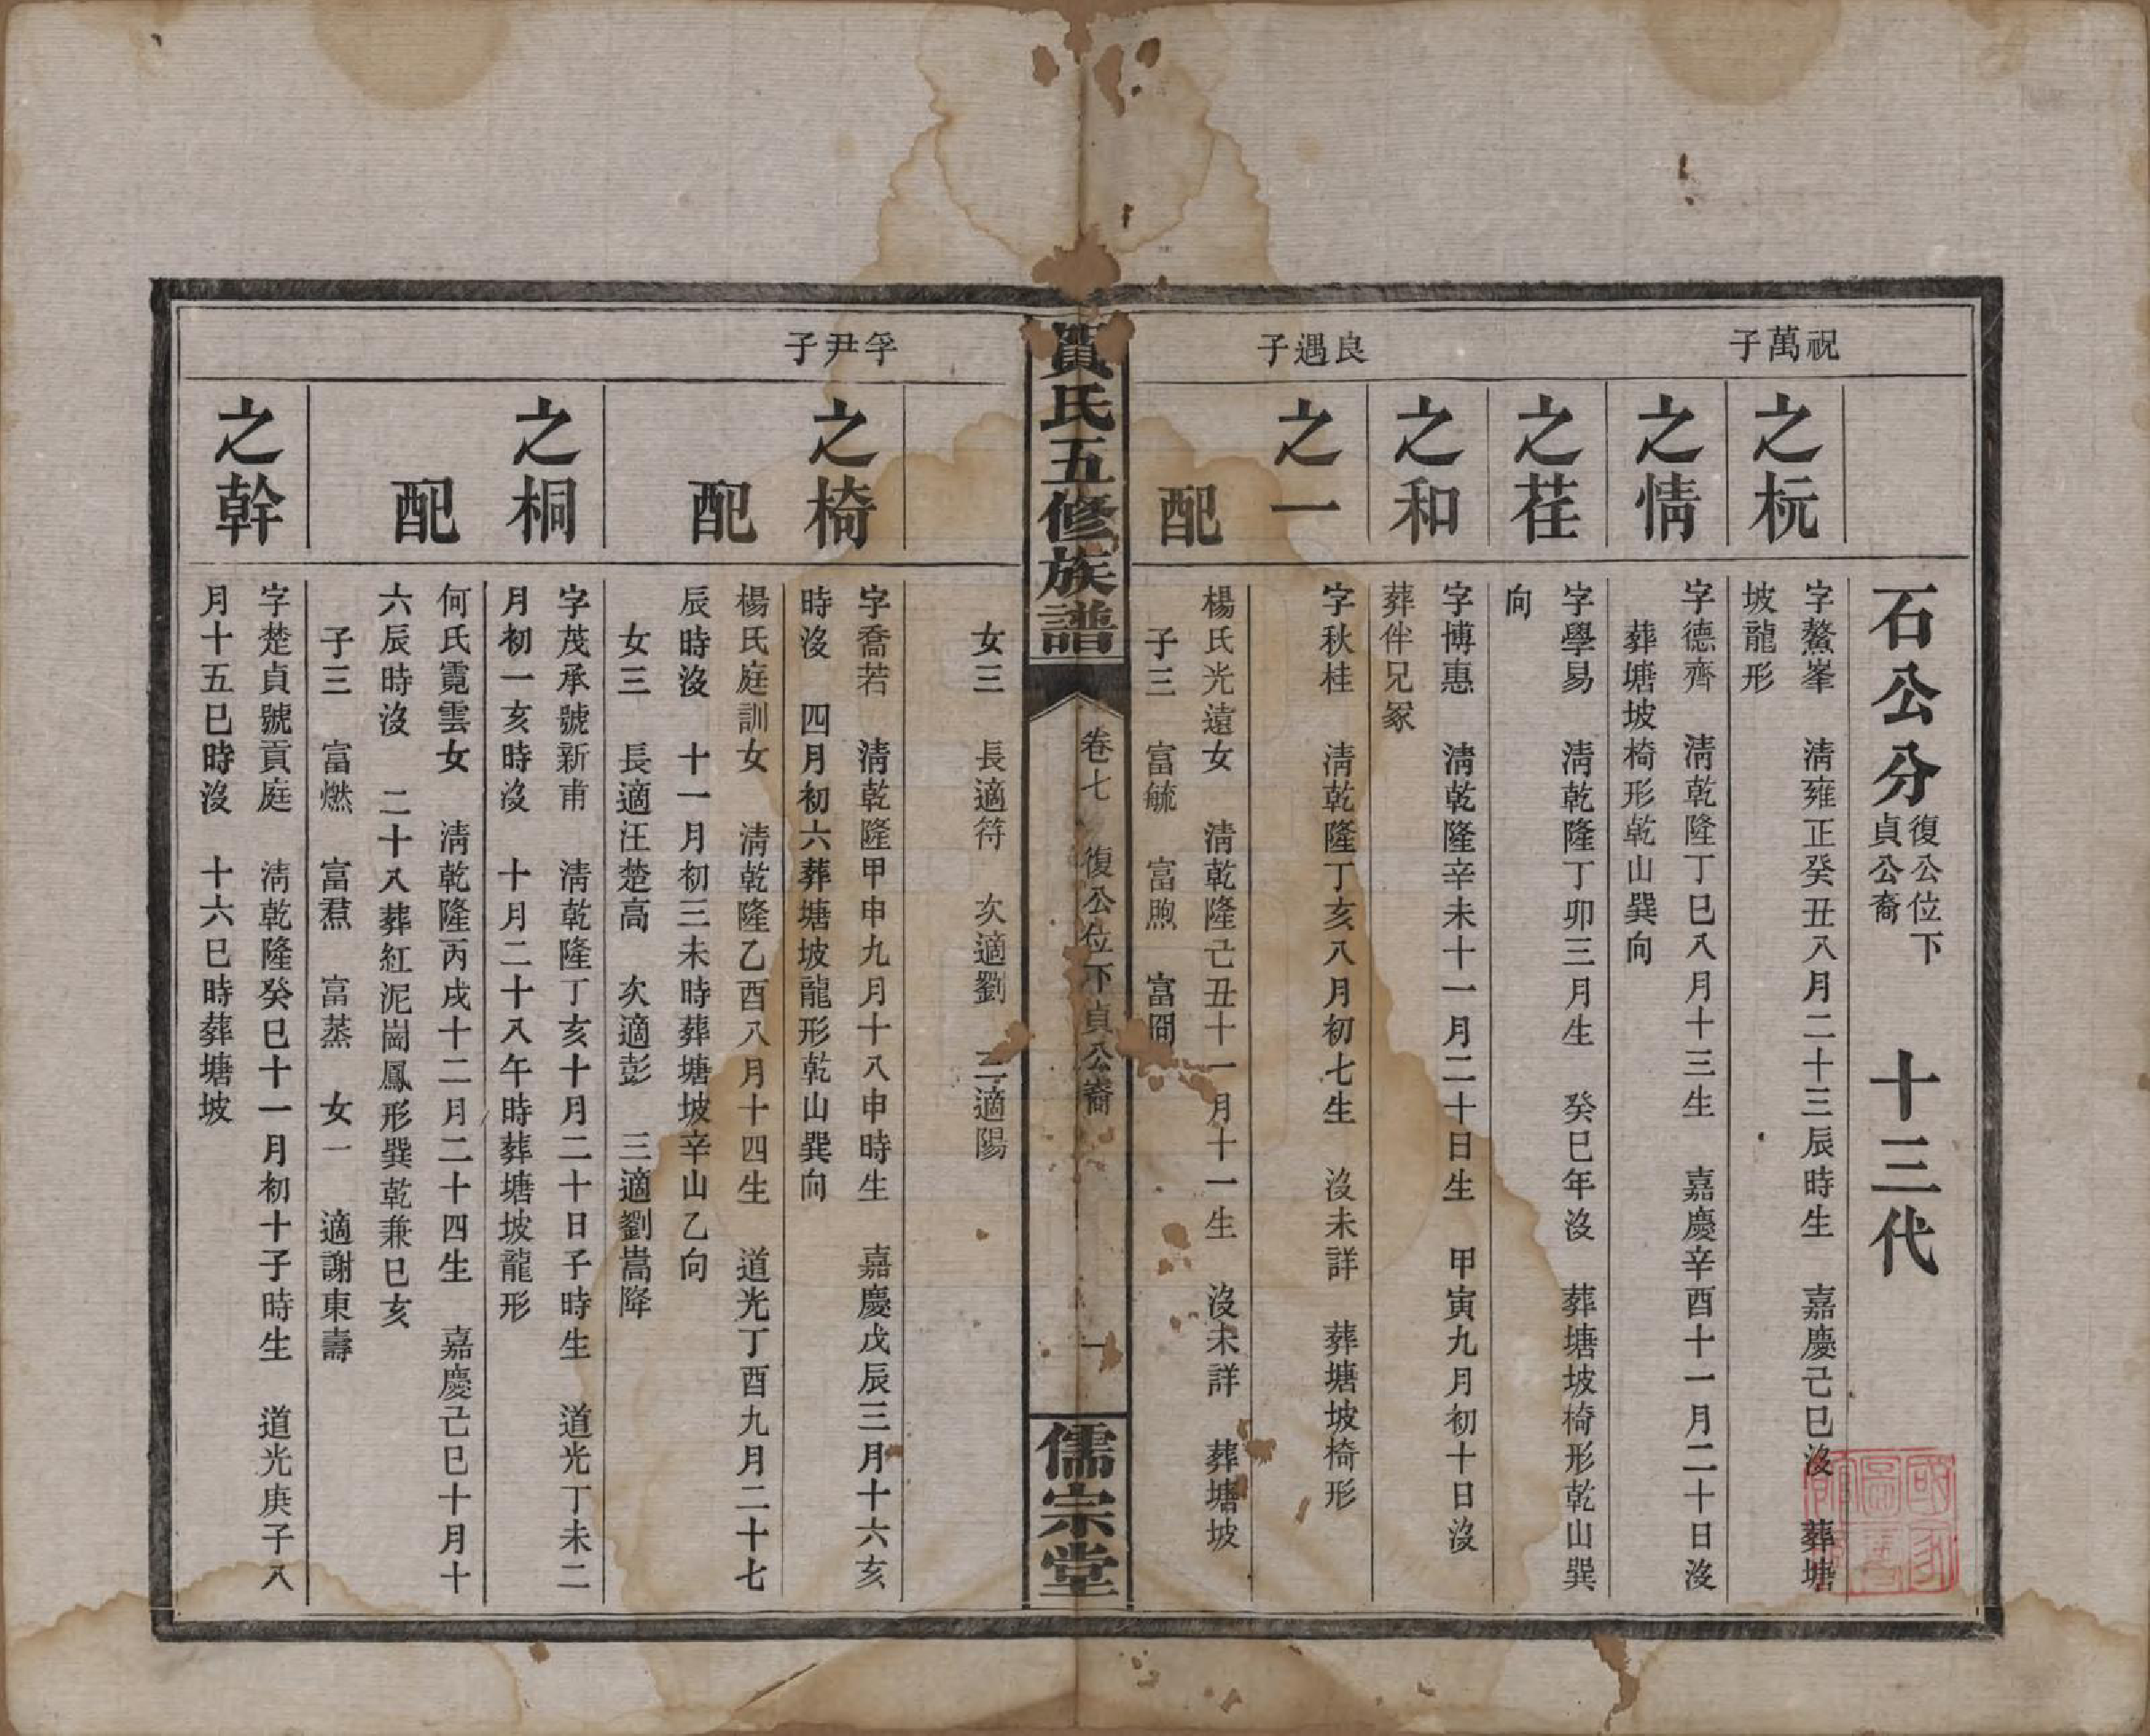 石公分 復公位下 貞公裔 十三代
祝萬子
之杬
字鰲峯 淸雍正癸丑八月二十三辰時生 嘉慶己巳沒 葬塘
坡龍形
之情
字德齊 淸乾隆丁巳八月十三生 嘉慶辛酉十一月二十日沒
葬塘坡椅形乾山巽向
之荏
字學易 淸乾隆丁卯三月生 癸巳年沒 葬塘坡椅形乾山巽
向
之和
字博惠 淸乾隆辛未十一月二十日生 甲寅九月初十日沒
葬伴兄冢
良遇子
之一
字秋桂 淸乾隆丁亥八月初七生 沒未詳 葬塘坡椅形
配
楊氏光遠女 淸乾隆己丑十一月十一生 沒未詳 葬塘坡
子三 富毓 富煦 富冏
賀氏五修族譜
卷七 復公位下貞公裔
一
儒宗堂
女三 長適符 次適劉 三適陽
孚尹子
之椅
字喬若 淸乾隆甲申九月十八申時生 嘉慶戊辰三月十六亥
時沒 四月初六葬塘坡龍形乾山巽向
配
楊氏庭訓女 淸乾隆乙酉八月十四生 道光丁酉九月二十七
辰時沒 十一月初三未時葬塘坡辛山乙向
女三 長適汪楚高 次適彭 三適劉嵩降
之桐
字茂承號新甫 淸乾隆丁亥十月二十日子時生 道光丁未二
月初一亥時沒 十月二十八午時葬塘坡龍形
配
何氏霓雲女 淸乾隆丙戌十二月二十四生 嘉慶己巳十月十
六辰時沒 二十八葬紅泥崗鳳形巽乾兼巳亥
子三 富燃 富焄 富蒸 女一 適謝東壽
之幹
字楚貞號貢庭 淸乾隆癸巳十一月初十子時生 道光庚子八
月十五巳時沒 十六巳時葬塘坡